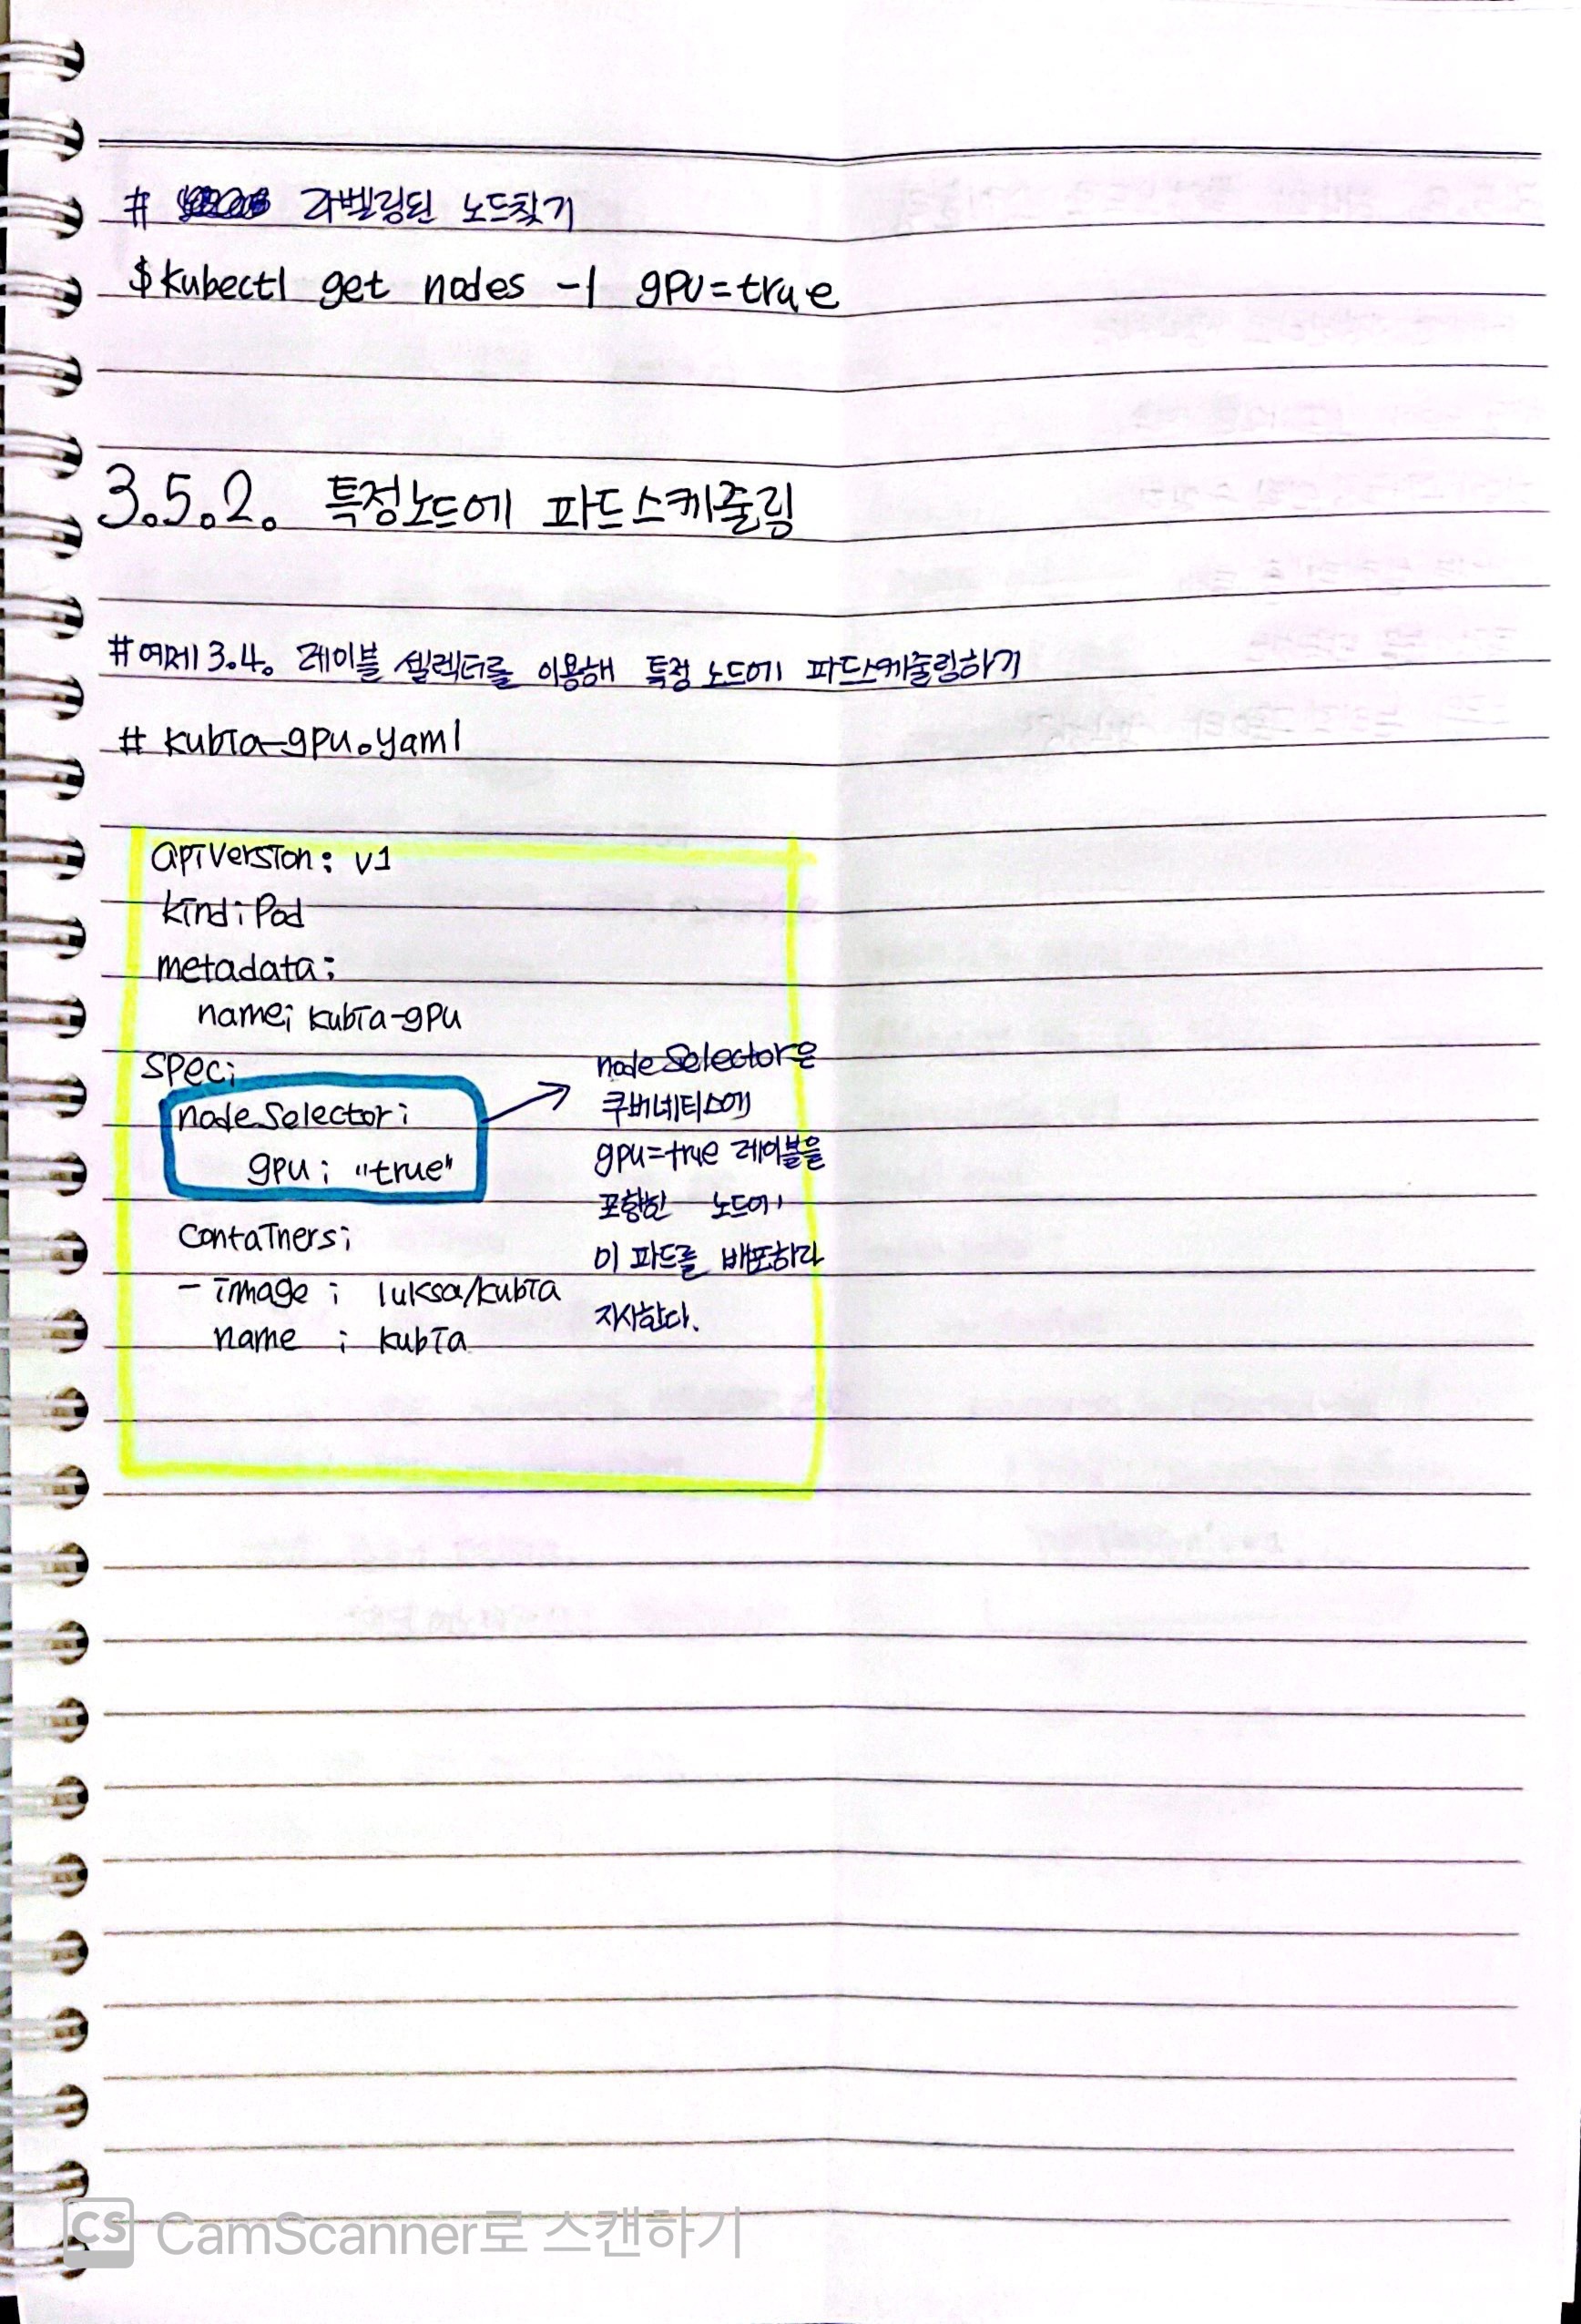 # 라벨링된 노드찾기
$kubectl get nodes -l gpu=true
3.5.2. 특정노드에 파드스케줄링
#예제 3.4. 레이블 셀렉터를 이용해 특정 노드에 파드스케줄링하기
# kubia-gpu.yaml
apiVersion: v1
kind: Pod
metadata:
name: kubia-gpu
spec:
nodeSelector:
gpu: "true"
containers:
- image : luksa/kubia
name : kubia
nodeSelector은
쿠버네티스에
gpu=true 레이블을
포함한 노드에
이 파드를 배포하라
지시한다.
CS CamScanner로 스캔하기